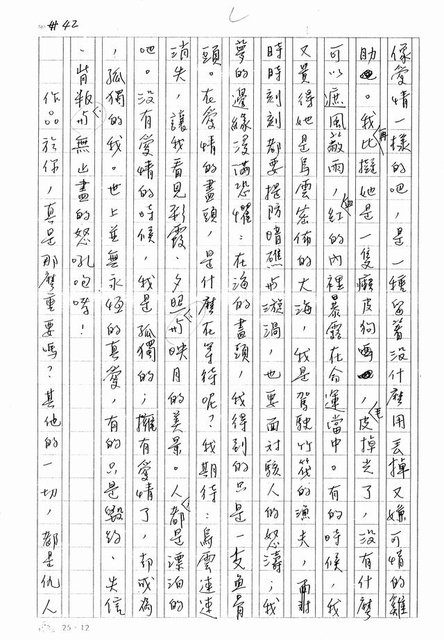 #42
像愛情一樣的吧，是一種留著沒什麼用丟掉又嫌可惜的雞
助。我再比擬她是一隻癩皮狗，皮毛掉光了，沒有什麼
可以遮風蔽雨，血紅的肉裡暴露在命運當中。有的時候，我
又覺得她是烏雲密佈的大海，我是駕駛竹筏的漁夫，面對
時時刻刻都要提防暗礁與漩渦，也要面對駭人的怒濤；我
夢的邊緣浸滿恐懼：在海的盡頭，我得到的只是一支魚骨
頭。在愛情的盡頭，是什麼在等待呢？我期待：烏雲速速
消失，讓我看見彩霞、夕照與映月的美景。人都是漂泊的
吧。沒有愛情的時候，我是孤獨的；擁有愛情了，却成為
，孤獨的我。世上並無永恆的真愛，有的只是毀約、失信
、背叛與無止盡的怒吼咆哮！
作品於你，真是那麼重要嗎？其他的一切，都是仇人
25×12